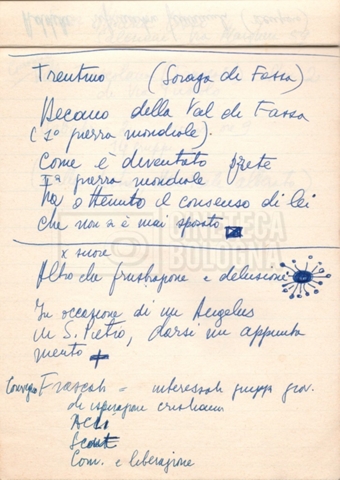 Trentino (Soraga di Fassa)
Decano della Val di Fassa
(1ª guerra mondiale).
Come è diventato prete
Iª guerra mondiale
ha ottenuto il consenso di lei
che non si è mai sposata
x suore
Altro che frustrazione e delusione
In occasione di un Angelus
in S. Pietro, darsi un appunta
mento
Convegno Frascati = interessati gruppi giov.
di ispirazione cristiana
ACLI
Scout
Com. e liberazione
CINETECA
BOLOGNA